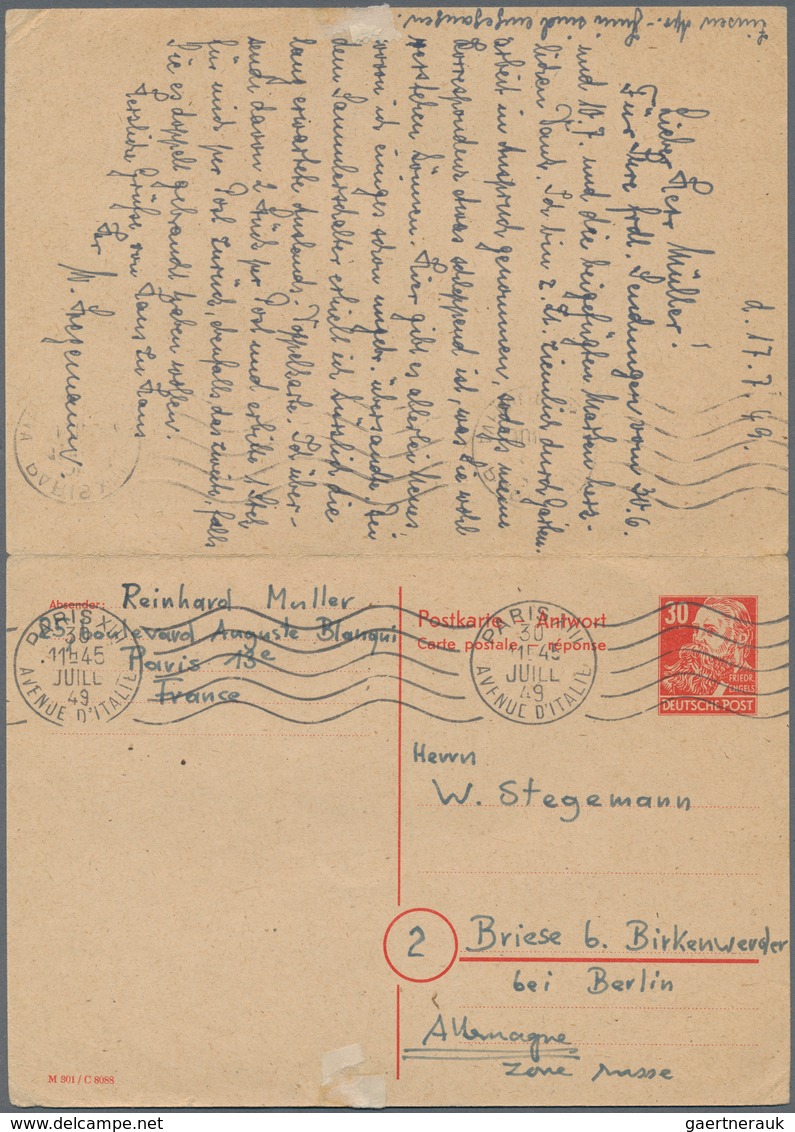 Zinsen Apr.-Juni sind eingegangen.
d. 17.7.49.
Lieber Herr Müller!
Für Ihre frdl. Sendungen vom 30.6.
und 10.7. und die beigefügten Marken herz-
lichen Dank. Ich bin z. Zt. ziemlich durch Garten-
arbeit in Anspruch genommen, sodaß meine
Korrespondenz etwas schleppend ist, was Sie wohl
verstehen können. Hier gibt es allerlei Neues,
wovon ich einiges schon übersandte. An
dem Sammlerschalter erhielt ich kürzlich die
lang erwartete Auslands-Doppelkarte. Ich über-
sende davon 2 Stück per Post und erbitte 1 Stck
für mich per Post zurück, ebenfalls das zweite, falls
Sie es doppelt gebraucht haben wollen.
Herzliche Grüße von Haus zu Haus
Ihr
W. Stegemann.
Absender: Reinhard Muller
Boulevard Auguste Blanqui
Paris 13e
France
PARIS XIII
30
11H45
JUILL
49
AVENUE D'ITALIE
PARIS XIII
30
11H45
JUILL
49
AVENUE D'ITALIE
Postkarte - Antwort
Carte postale réponse
30
FRIEDR.
ENGELS
DEUTSCHE POST
Herrn
W. Stegemann
2 Briese b. Birkenwerder
bei Berlin
Allemagne
zone russe
M 301 / C 8088
gaertnerauk